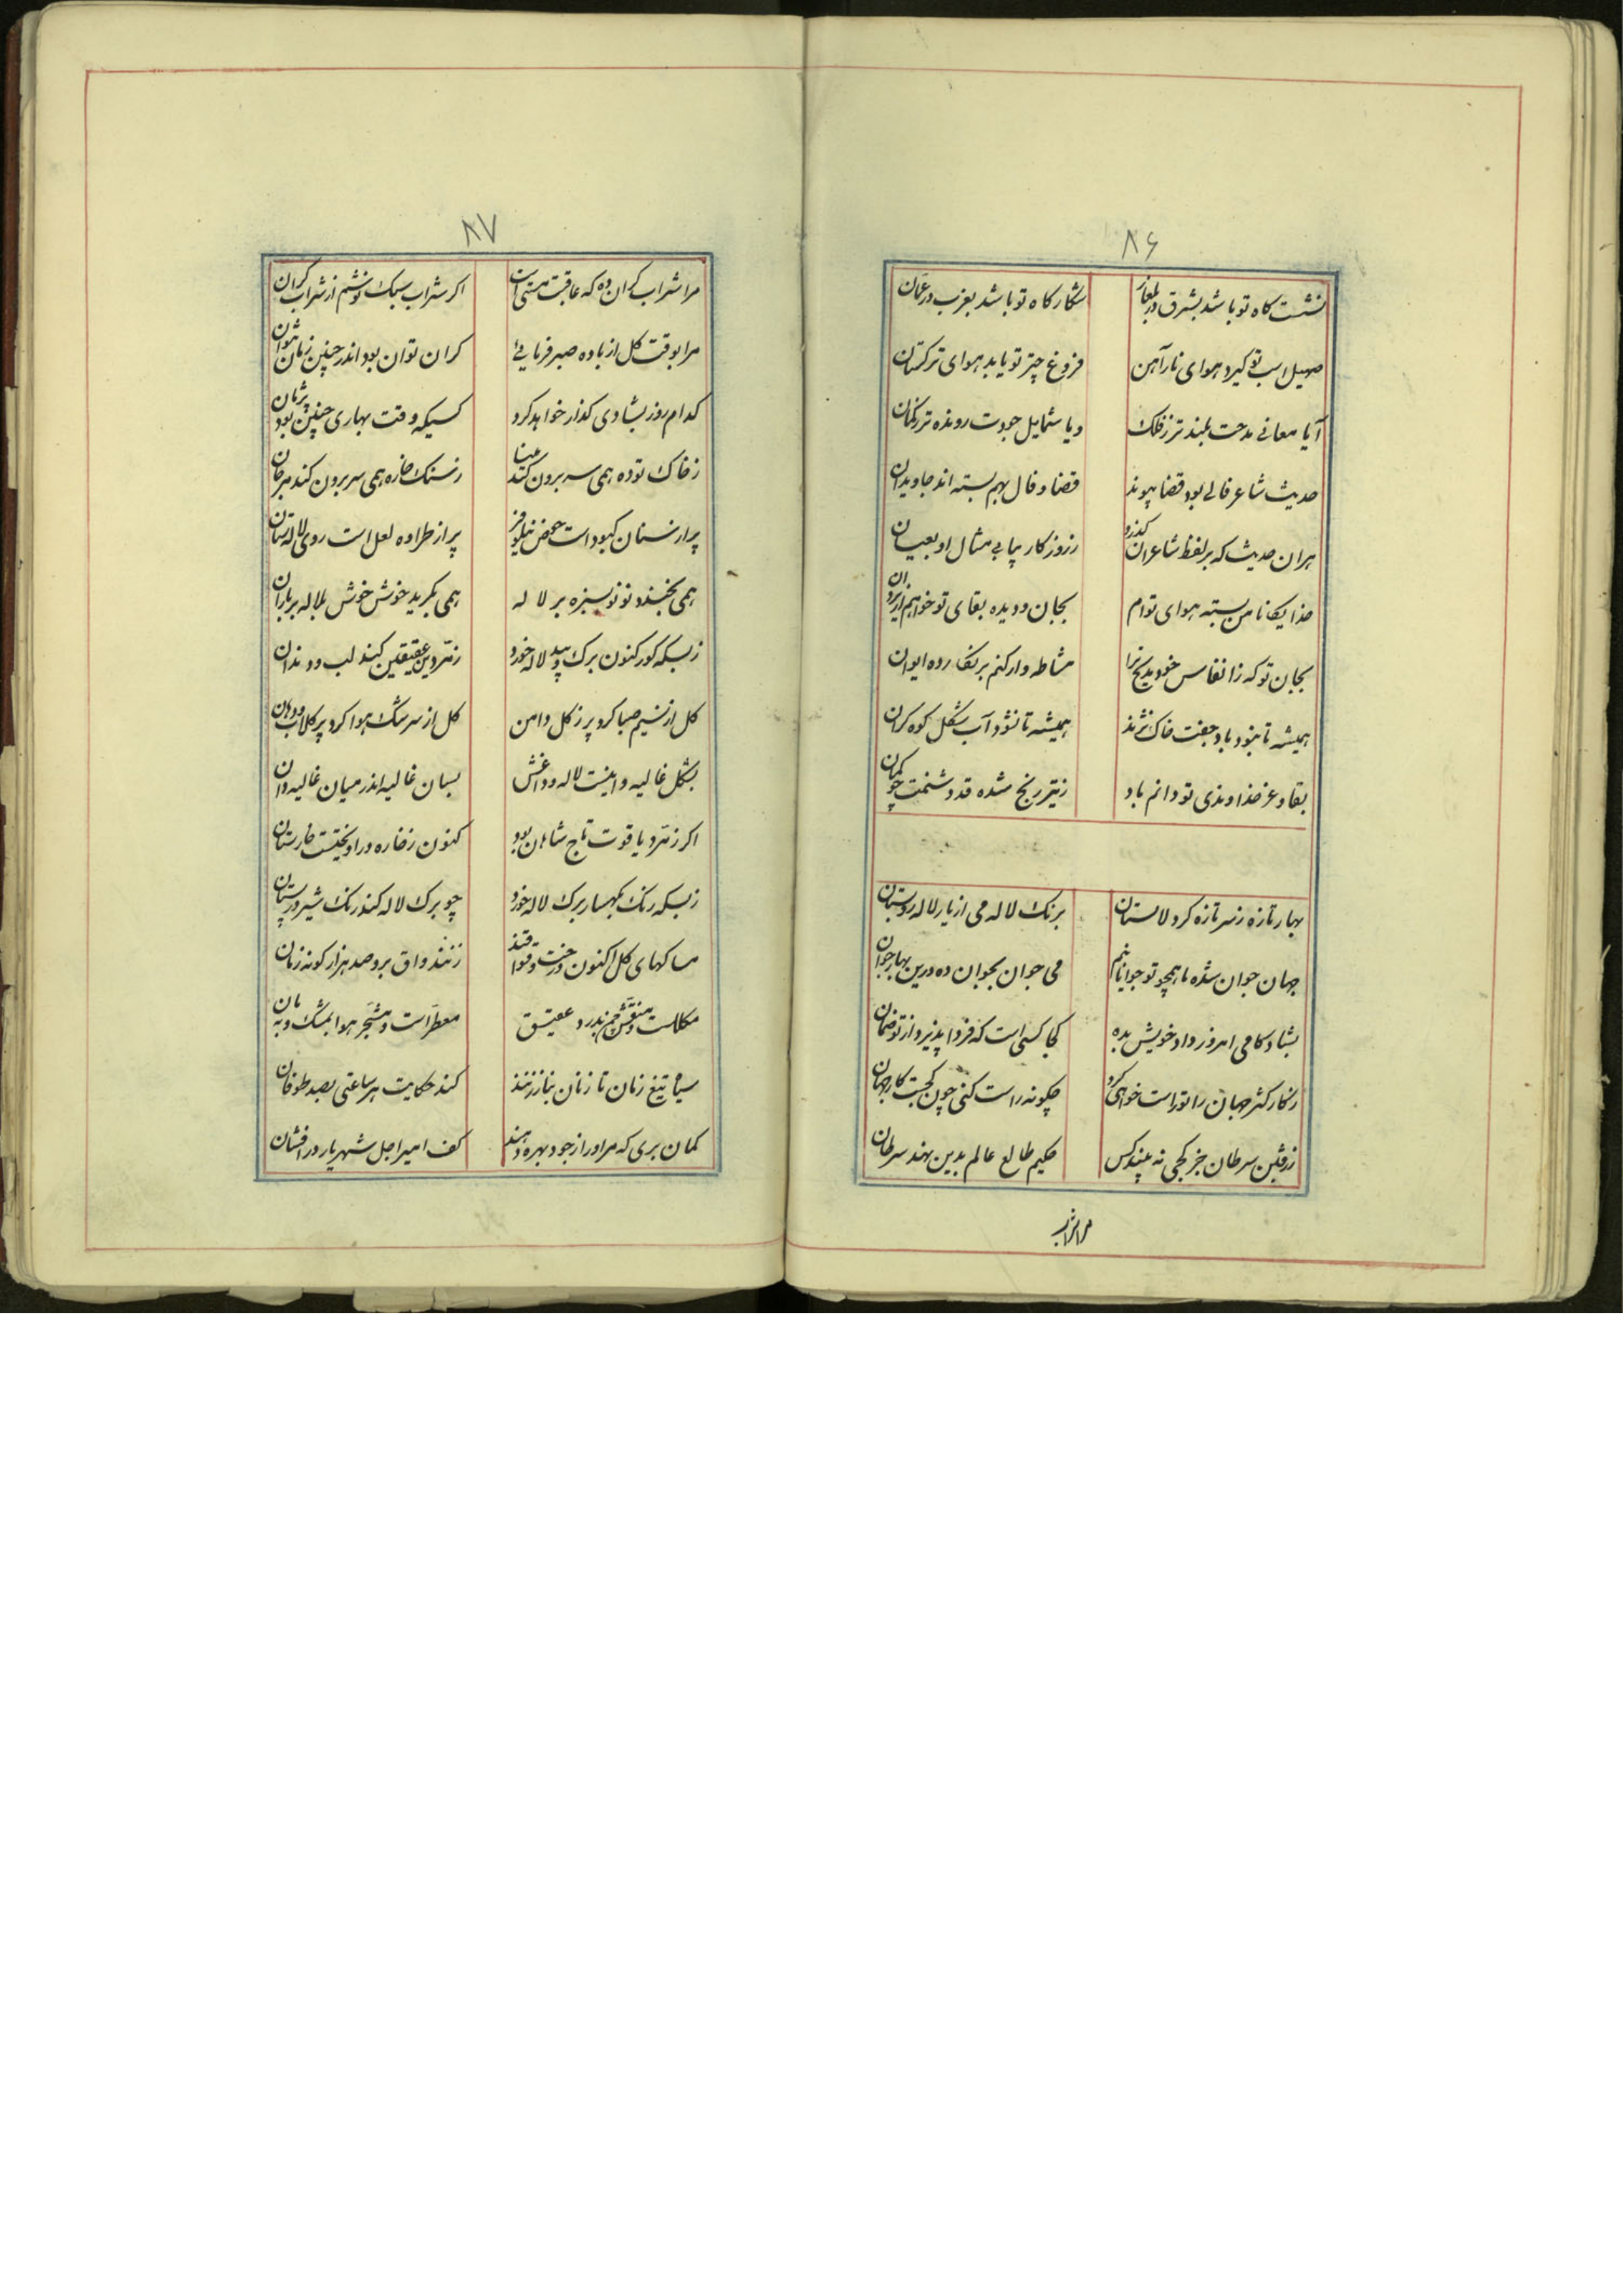 ۸۶
نشست کاه تو باشد بشرق در بلغار شکار کاه تو باشد بغرب در عمان
صهیل اسب تو کیرد هوای نارآهن فروغ چتر تو یابد هوای ترکستان
آیا معانی مدحت بلند تر ز فلک و یا شمایل جودت رونده تر ز کمان
حدیث شاعر فالی بود قضا پیوند قضا و فال بهم بسته اند جاویدان
هر ان حدیث که بر لفظ شاعران کذرد ز روزکار بیابی مثال او بعیان
خدایکانا من بسته هوای توام بجان و دیده بقای تو خواهم از یزدان
بجان تو که ز انفاس خود مدیح ترا مشاطه وار کنم بر نکار ده ایوان
همیشه تا نبود باد جفت خاک نژند همیشه تا نشود آب شکل کوه کران
بقا و عز خداوندی تو دائم باد ز تیر رنج شده قد دشمنت چو کمان
بهار تازه ز سر تازه کرد لالستان برنک لاله می از یار لاله رو بستان
جهان جوان شده ما همچو تو جوانانیم می جوان بجوان ده درین بهار جوان
بشادکامی امروز داد خویش بده کجا کسی است که فردا پذیرد از تو ضمان
ز کار کثر جهان را تو راست خواهی کرد چکونه راست کنی چون کجست کار جهان
ز رفتن سرطان جز کجی نه بیند کس حکیم طالع عالم بدین نهد سرطان
مرا شراب
۸۷
مرا شراب کران ده که عاقبت مستی است اکر شراب سبک نوشم از شراب کران
مرا بوقت کل از باده صبر فرمایی کران توان بود اندر چنین زمان نتوان
کدام روز بشادی کذار خواهد کرد کسیکه وقت بهاری چنین بود پژمان
ز خاک توده همی سر برون کند مینا ز سنک خاره همی سر برون کند مرجان
پر از سنان کبود است حوض نیلوفر پر از طراده لعل است روی لاله ستان
همی بخندد نو نو بسبزه بر لاله همی بکرید خوش خوش بلاله بر باران
ز بسکه کور کنون برک بید و لاله خورد زمردین عقیقین کند لب و دندان
کل از نسیم صبا کرد پر ز کل دامن کل از سرشک هوا کرد پر کلاب دهان
بشکل غالیه دانیست لاله و داغش بسان غالیه اندر میان غالیه دان
اکر زمرد و یاقوت تاج شاهان بود کنون ز خاره در اویختست خارستان
ز بسکه رنک بکهسار برک لاله خورد چو برک لاله کند رنک شیر در پستان
بساکهای کل اکنون درخت وقواقند زنند واق برو صد هزار کونه زنان
مکللست و منقش چمن بدر و عقیق معطر است و مشجر هوا بمشک و به بان
سیاه تیغ زمان تا زمان بنا زنند کند حکایت هر ساعتی بصد طوفان
کمان بری که مر او را ز جود بهره دهند کف امیر اجل شهریار در افشان